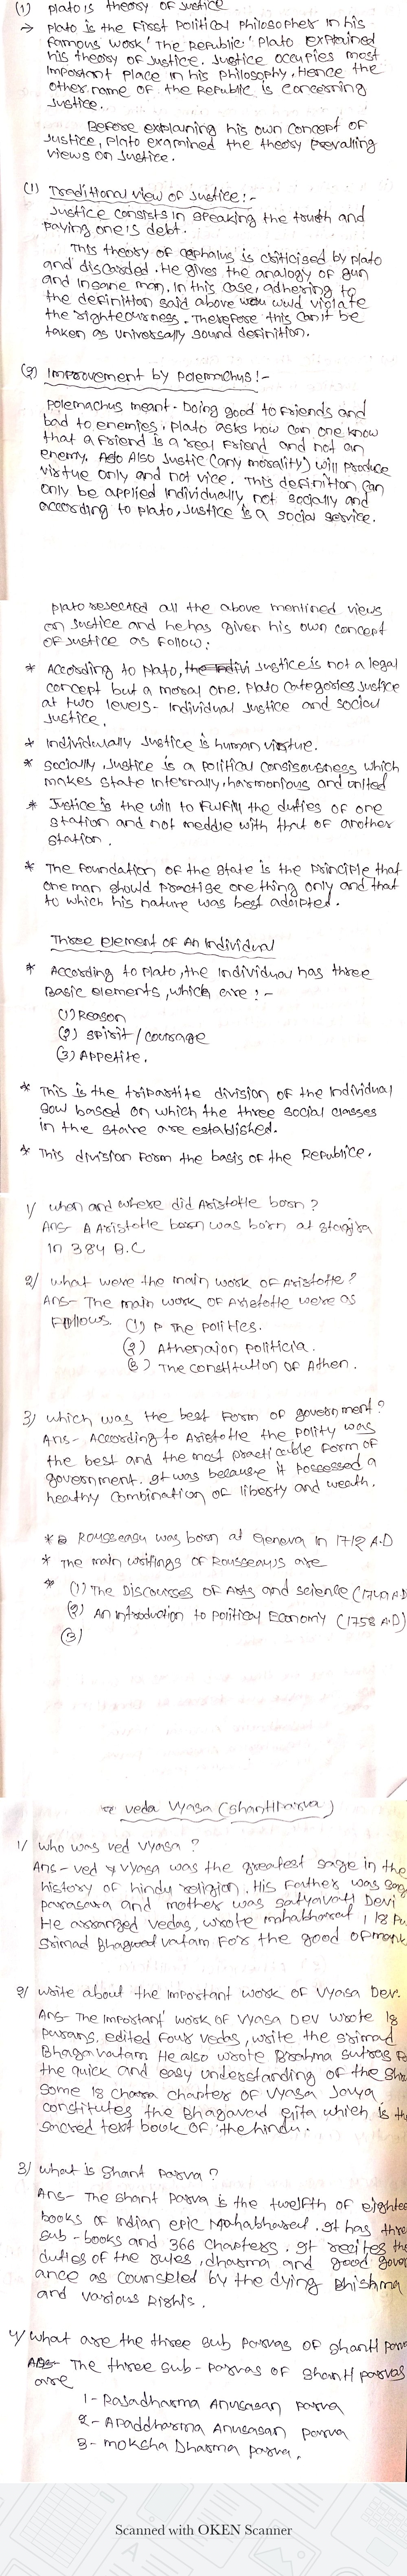 (1) Plato is theory of Justice.
→ Plato is the First Political Philosopher in his
famous work 'The Republic' Plato explained
his theory of Justice. Justice occupies most
Important Place in his Philosophy. Hence the
other name of the Republic is concerning
Justice.
Before explaining his own concept of
Justice, Plato examined the theory Prevalling
views on Justice.
(1) Traditional view of Justice :-
Justice consists in speaking the truth and
Paying one's debt.
This theory of cephalus is criticised by plato
and discarded. He gives the analogy of gun
and Insane man. In this case, adhering to
the definition said above would violate
the righteousness. Therefore this can't be
taken as universally sound definition.
(2) Improvement by Polemachus :-
Polemachus meant - Doing good to friends and
bad to enemies. Plato asks how can one know
that a friend is a real friend and not an
enemy. Also Justic (any morality) will Produce
virtue only and not vice. This definition can
only be applied Individually, not socially and
according to plato, Justice is a social service.
Plato resected all the above mentined views
on Justice and he has given his own concept
of Justice as follow:
* According to Plato, Justice is not a legal
concept but a moral one. Plato Categories Justice
at two levels - Individual Justice and social
Justice.
* Individually Justice is human virtue.
* Socially, Justice is a Political consisousness which
makes state Internally, harmonious and united
* Justice is the will to Fulfill the duties of one
station and not meddle with that of another
station.
* The Foundation of the state is the Principle that
one man should Practise one thing only and that
to which his nature was best adopted.
Three Element of An Individual
* According to Plato, the Individual has three
Basic elements, which are :-
(1) Reason
(2) Spirit / Courage
(3) Appetite.
* This is the tripartite division of the Individual
soul based on which the three social classes
in the state are established.
* This division Form the basis of the Republice.
1/ when and where did Aristotle born ?
Ans- Aristotle was born at stanjira
In 384 B.C
2/ what were the main work of Aristotle ?
Ans- The main work of Aristotle were as
Follows. (1) The Politics.
(2) Athenaion Politicia.
(3) The constitution of Athen.
3/ which was the best form of government ?
Ans- According to Aristotle the Polity was
the best and the most practicable form of
government. It was because it Possessed a
healthy Combination of liberty and wealth.
* Rousseasu was born at Geneva in 1712 A.D
* The main writings of Rousseauis are
* (1) The Discourses of Arts and science (A.D
(2) An Introduction to Political Economy (1758 A.D)
(3)
Veda Vyasa (Shantiparva)
1/ who was ved vyasa ?
Ans - ved vyasa was the greatest sage in the
history of hindu religion. His Father was sag
Parasara and mother was satyavati Devi
He arranged vedas, wrote mahabharat, 18 Pu
Srimad Bhagwad vatam For the good of mank
2/ write about the Important work of Vyasa Dev.
Ans- The Important work of Vyasa Dev wrote 18
Purans, edited Four Vedas, write the srimad
Bhagavatam He also wrote Brahma sutras Fo
the quick and easy understanding of the Sha
some 18 chapter of Vyasa Jaya,
constitutes the Bhagavad Gita which is th
sacred text book of the hindu.
3/ what is Shant Parva ?
Ans- The Shant Parva is the twelfth of eightee
books of Indian epic Mahabharat. It has thre
sub-books and 366 chapters. It recites the
duties of the rules, dharma and good gover
ance as counseled by the dying Bhishma
and various Rishis.
4/ what are the three sub Parvas of Shanti Parva
Ans- The three sub-Parvas of Shanti Parvas
are
1- Rajadharma Anusasan Parva
2- Apaddharma Anusasan Parva
3- Moksha Dharma Parva.
Scanned with OKEN Scanner